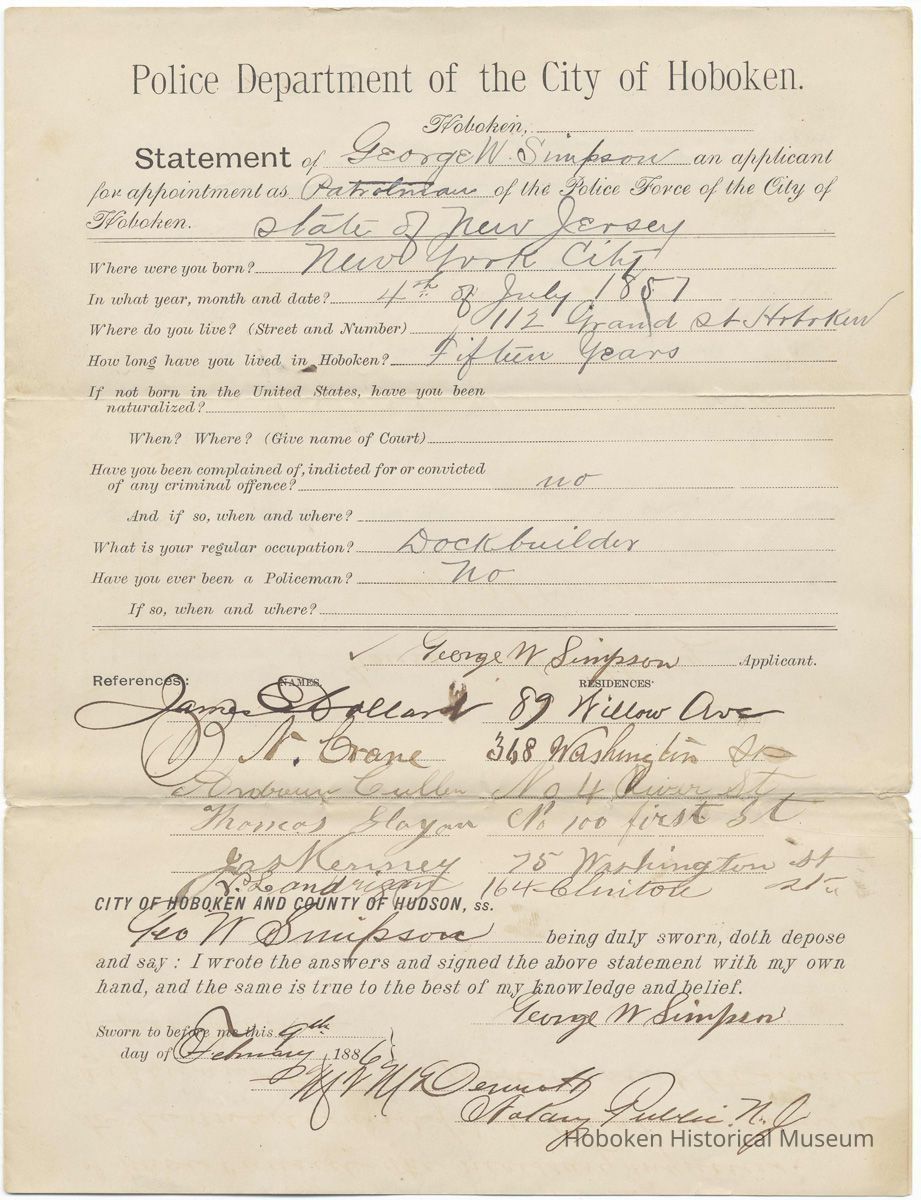 Police Department of the City of Hoboken.
Hoboken,
Statement of George W. Simpson an applicant
for appointment as Patrolman of the Police Force of the City of
Hoboken. State of New Jersey
Where were you born? New York City
In what year, month and date? 4th of July 1857
Where do you live? (Street and Number) 112 Grand St Hoboken
How long have you lived in Hoboken? Fifteen Years
If not born in the United States, have you been
naturalized?
When? Where? (Give name of Court)
Have you been complained of, indicted for or convicted
of any criminal offence? no
And if so, when and where?
What is your regular occupation? Dockbuilder
Have you ever been a Policeman? No
If so, when and where?
George W Simpson Applicant.
References: NAMES. RESIDENCES
James 89 Willow Ave
N. Crane 368 Washington St
Cullen No 4 River St
Thomas No 100 first St.
Jas Kenney 75 Washington st
164 Clinton st
CITY OF HOBOKEN AND COUNTY OF HUDSON, ss.
Geo W Simpson being duly sworn, doth depose
and say: I wrote the answers and signed the above statement with my own
hand, and the same is true to the best of my knowledge and belief.
George W Simpson
Sworn to before me this 9th
day of February 1886
Notary Public N.J
Hoboken Historical Museum